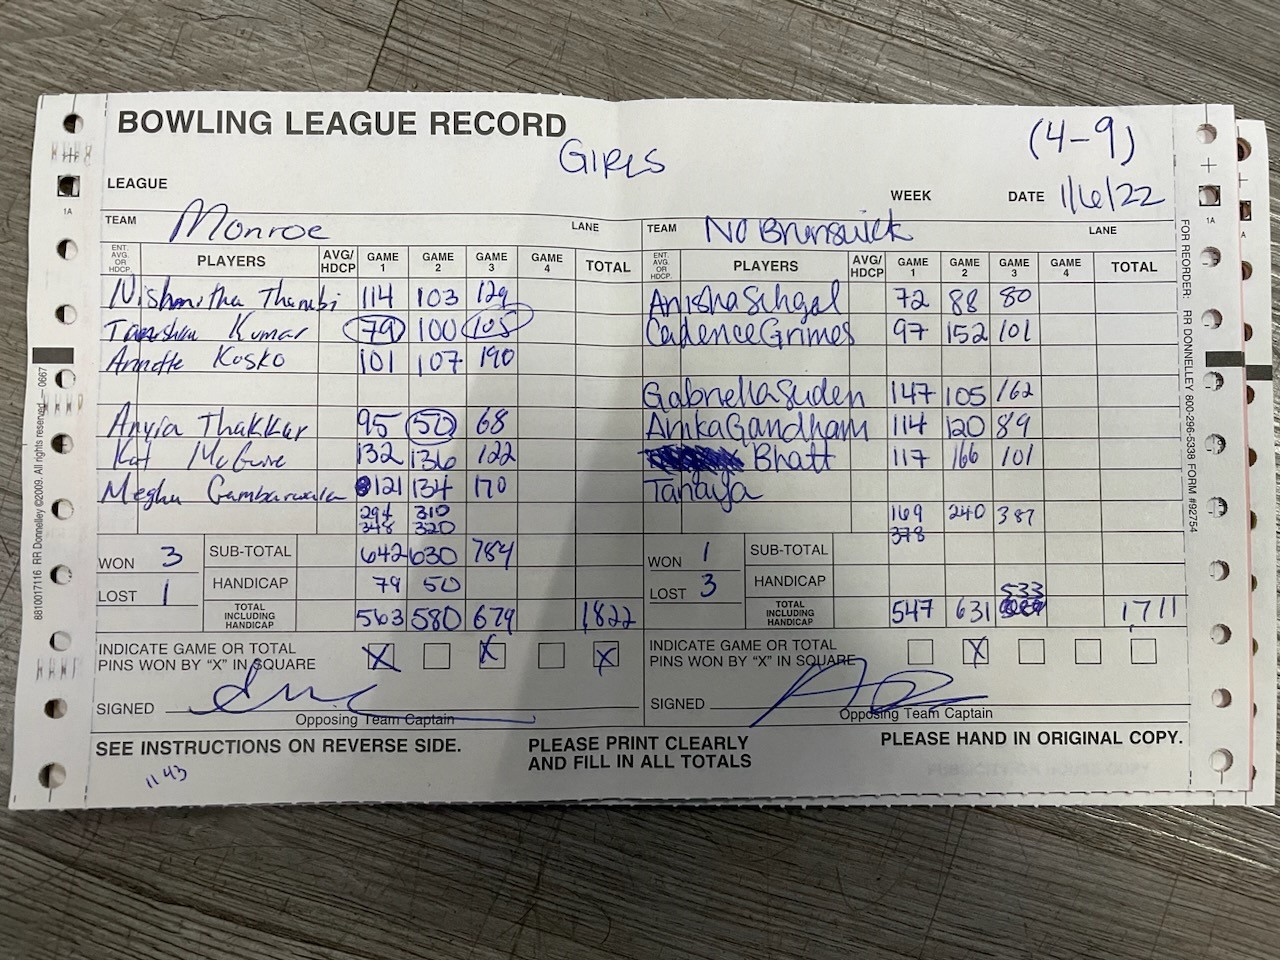 BOWLING LEAGUE RECORD
GIRLS
(4-9)
LEAGUE WEEK DATE 1/6/22
TEAM Monroe LANE TEAM No Brunswick LANE
ENT. AVG. OR HDCP. PLAYERS AVG/HDCP GAME 1 GAME 2 GAME 3 GAME 4 TOTAL ENT. AVG. OR HDCP. PLAYERS AVG/HDCP GAME 1 GAME 2 GAME 3 GAME 4 TOTAL
Nishmitha 114 103 129 Anisha Sehgal 72 88 80
Kumar 79 100 105 Cadence Grimes 97 152 101
Annette Kosko 101 107 190
Gabriella Suden 147 105 162
Thakkar 95 50 68 Anika Gandham 114 120 89
Kat McGuire 132 136 122 Bhatt 117 166 101
Megha Gambarwala 121 134 170 Tanaya
294 310 169 240 387
348 320 378
WON 3 SUB-TOTAL 642 630 784 WON 1 SUB-TOTAL
LOST 1 HANDICAP 79 50 LOST 3 HANDICAP 533
TOTAL INCLUDING HANDICAP 563 580 679 1822 TOTAL INCLUDING HANDICAP 547 631 1711
INDICATE GAME OR TOTAL X X X INDICATE GAME OR TOTAL X
PINS WON BY "X" IN SQUARE PINS WON BY "X" IN SQUARE
SIGNED SIGNED
Opposing Team Captain Opposing Team Captain
SEE INSTRUCTIONS ON REVERSE SIDE. PLEASE PRINT CLEARLY PLEASE HAND IN ORIGINAL COPY.
AND FILL IN ALL TOTALS
1143
8810017116 RR Donnelley ©2009. All rights reserved. 0667
FOR REORDER: RR DONNELLEY 800-296-5338 FORM #92754
1A
1A